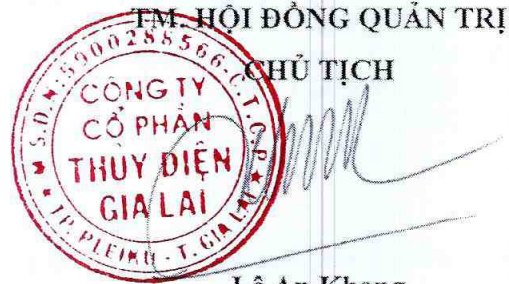 TM. HỘI ĐỒNG QUẢN TRỊ
CHỦ TỊCH
M.S.D.N: 5900288566.C.T.C.P
CÔNG TY
CỔ PHẦN
THỦY ĐIỆN
GIA LAI
TP. PLEIKU - T. GIA LAI
Lê An Khang